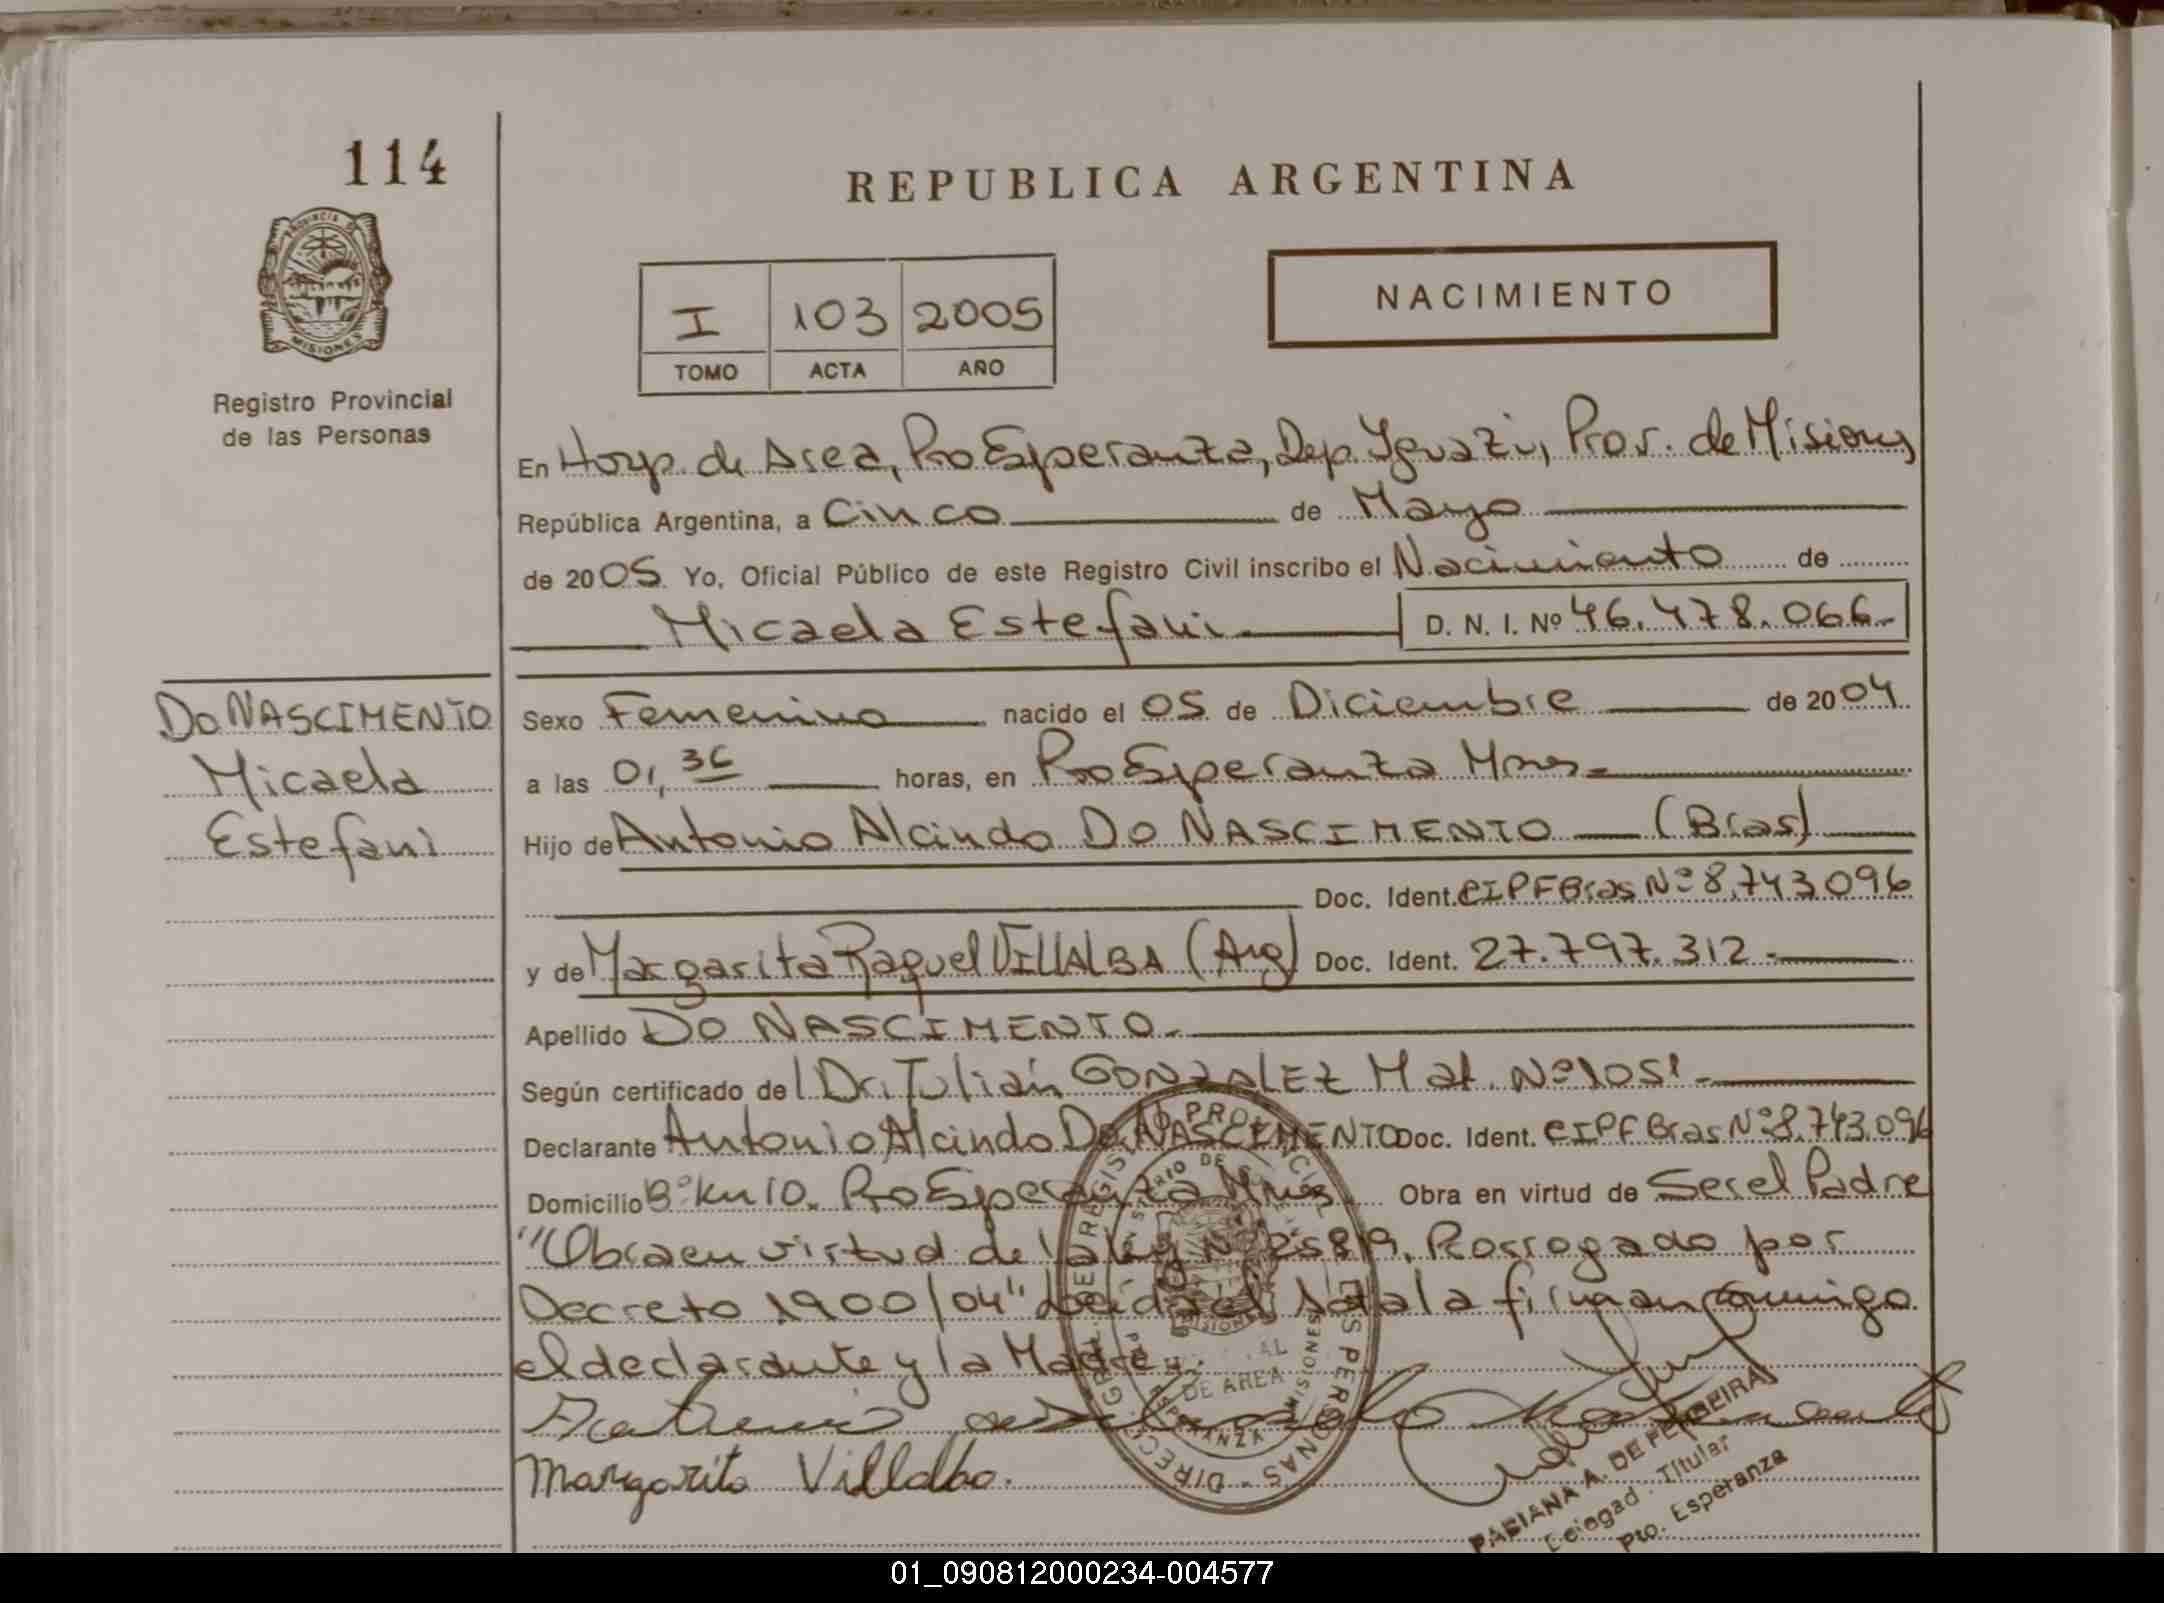 114
REPUBLICA ARGENTINA
PROVINCIA DE
MISIONES
Registro Provincial
de las Personas
I 103 2005
TOMO ACTA AÑO
NACIMIENTO
En Hosp. de Area, Pto Esperanza, Dep. Iguazú, Prov. de Misiones
República Argentina, a Cinco de Mayo
de 2005 Yo, Oficial Público de este Registro Civil inscribo el Nacimiento de
Micaela Estefani D. N. I. Nº 46.478.066.-
Do NASCIMENTO
Micaela
Estefani
Sexo Femenino nacido el 05 de Diciembre de 2004
a las 01,36 horas, en Pto Esperanza Mnes.-
Hijo de Antonio Alcindo Do NASCIMENTO (Bras)
Doc. Ident. CIPFBras Nº 8.743.096
y de Margarita Raquel VILLALBA (Arg) Doc. Ident. 27.797.312.-
Apellido Do NASCIMENTO.-
Según certificado del Dr. Julián GONZALEZ Mat. Nº 1051.-
Declarante Antonio Alcindo Do NASCIMENTO Doc. Ident. CIPF Bras Nº 8.743.096
Domicilio Bº Km 10. Pto Esperanza Mnes Obra en virtud de Ser el Padre
"Obra en virtud de la ley Nº 25819, Prorrogado por
Decreto 1900/04" Leída el Acta la firman conmigo
el declarante y la Madre.-
Margarita Villalba.
DIRECC. GRAL. DEL REGISTRO PROVINCIAL DE LAS PERSONAS
DE AREA
ESPERANZA MISIONES
FABIANA A. DE FERREIRA
Titular
Pto. Esperanza
01_090812000234-004577